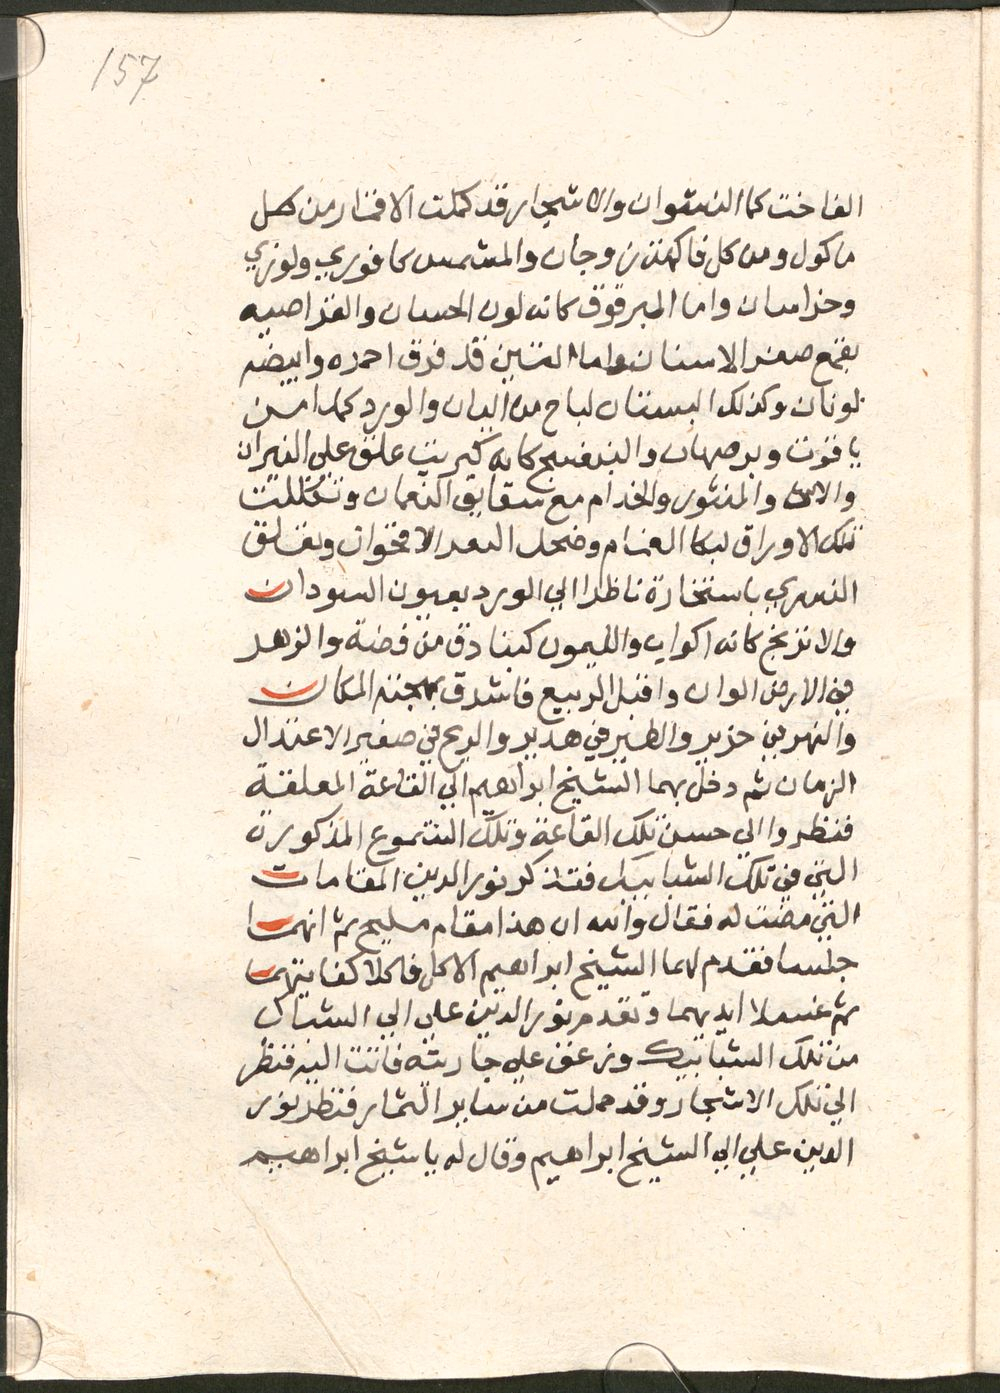 157
الفاخت كما النشوان والاشجار قد كملت الاثمار من كل
ماكول ومن كل فاكهة زوجان والمشمش كافوري ولوزي
وخراسان واما البرقوق كانه لون الحسان والقراصيه
يقمع صفر الاسنان واما التين قد فرق احمره وابيضه
لونان وكذلك البستان لباح من البان والورد كلها من
ياقوت ومرجان والبنفسج كانه كبريت علق على النيران
والاس والمنثور والخزام مع شقايق النعمان وتكللت
تلك الاوراق لبكا الغمام وضحك الاقحوان وبقا
ناظرا الي الورد بعيون السودان
والاترنج كانه اكواب والليمون كبنادق من فضة والزهر
في الارض الوان واقبل الربيع فاشرق ببهجته المكان
والنهر في خرير والطير في هدير والريح في صفير لاعتدال
الزمان ثم دخل بهما الشيخ ابراهيم الي القاعة المعلقة
فنظروا الي حسن تلك القاعة وتلك الشموع المذكورة
التي في تلك الشبابيك فتذكر نور الدين المقامات
التي مضت له فقال والله ان هذا مقام مليح ثم انهما
جلسا فقدم لهما الشيخ ابراهيم الاكل فاكلا كفايتهما
ثم غسلا ايديهما وتقدم نور الدين علي الي الشباك
من تلك الشبابيك وزعق علي جاريته فاتت اليه فنظر
الي تلك الاشجار وقد حملت من ساير الثمار فنظر نور
الدين علي الي الشيخ ابراهيم وقال له يا شيخ ابراهيم